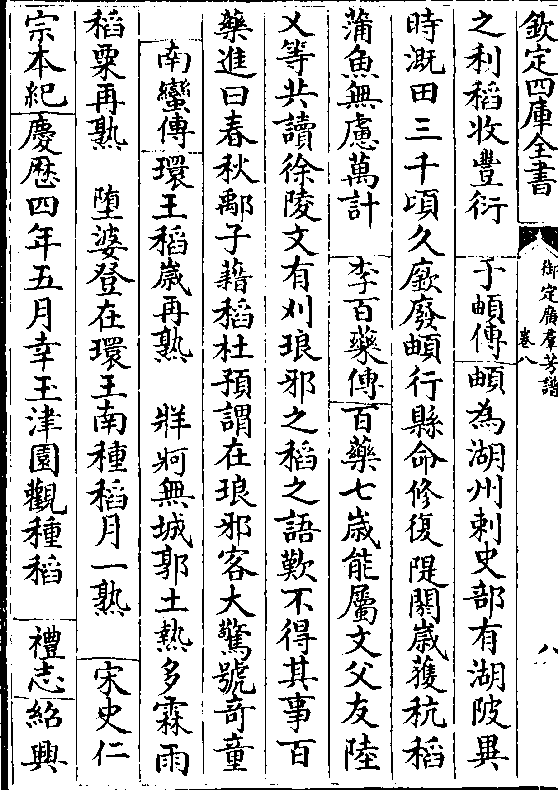 欽定四庫全書
御定廣羣芳譜
卷八
八
之利稻收豐衍　于頔傳頔為湖州刺史部有湖陂異
時溉田三千頃久廞廢頔行縣命修復隄閼歲穫秔稻
蒲魚無慮萬計　李百藥傳百藥七歲能屬文父友陸
乂等共讀徐陵文有刈琅邪之稻之語歎不得其事百
藥進曰春秋鄅子藉稻杜預謂在琅邪客大驚號奇童
南蠻傳環王稻歲再熟　牂牁無城郭土熱多霖雨
稻粟再熟　墮婆登在環王南種稻月一熟　宋史仁
宗本紀慶厯四年五月幸玉津園觀種稻　禮志紹興